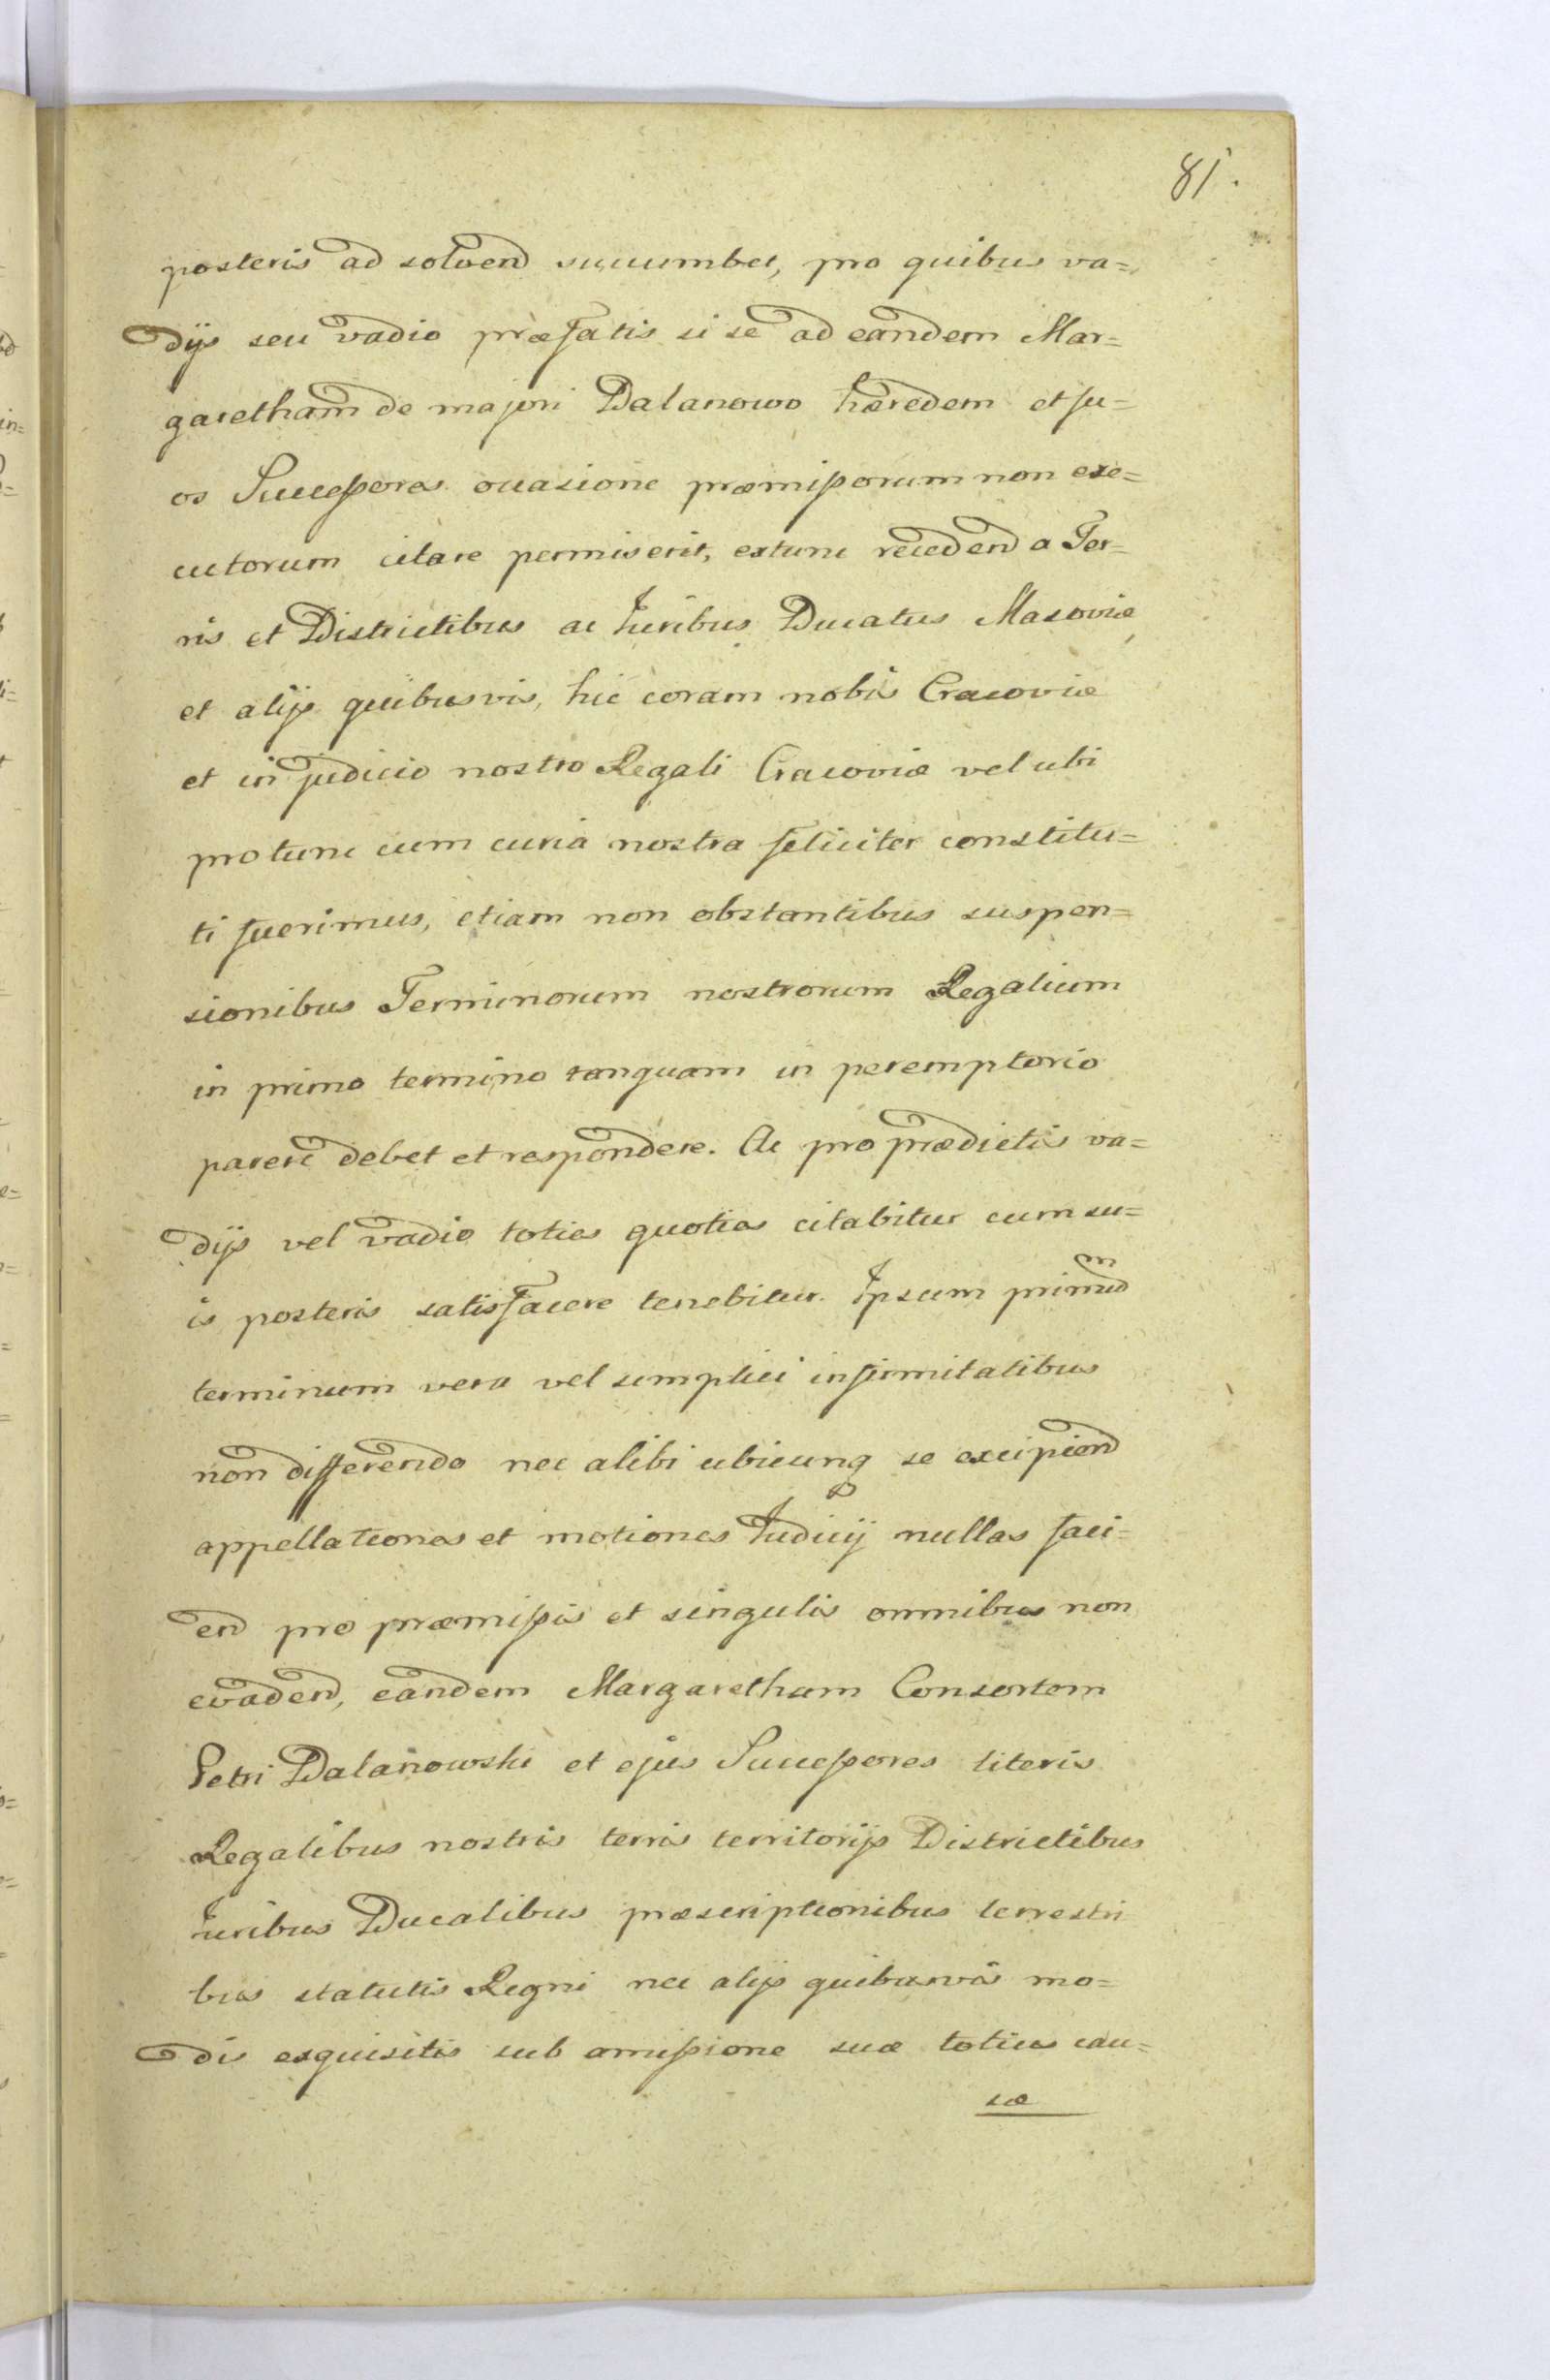 81.
posteris ad solvend succumbet, pro quibus va=
dijs seu vadio præfatis si se ad eandem Mar=
garetham de majori Dalanowo hæredem et su=
os Successores occasione præmissorum non exe=
cutorum citare permiserit, extunc recedend a Ter=
ris et Districtibus ac Juribus Ducatus Masoviæ
et alijs quibusvis, hic coram nobis Cracoviæ
et in judicio nostro Regali Cracoviæ vel ubi
pro tunc cum curia nostra feliciter constitu=
ti fuerimus, etiam non obstantibus suspen=
sionibus Terminorum nostrorum Regalium
in primo termino tanquam in peremptorio
parere debet et respondere. Ac pro prædictis va=
dijs vel vadio toties quoties citabitur cum su=
is posteris satisfacere tenebitur. Ipsum primum
terminum vera vel simplici infirmitatibus
non differendo nec alibi ubicunq se excipiend
appellationes et motiones Judicij nullas faci=
end pro præmissis et singulis omnibus non
evadend, eandem Margaretham Consortem
Petri Dalanowski et ejus Successores literis
Regalibus nostris terris territorijs Districtibus
Juribus Ducalibus præscriptionibus terrestri
bus statutis Regni nec alijs quibusvis mo=
dis exquisitis sub amissione suæ totius cau=
sæ